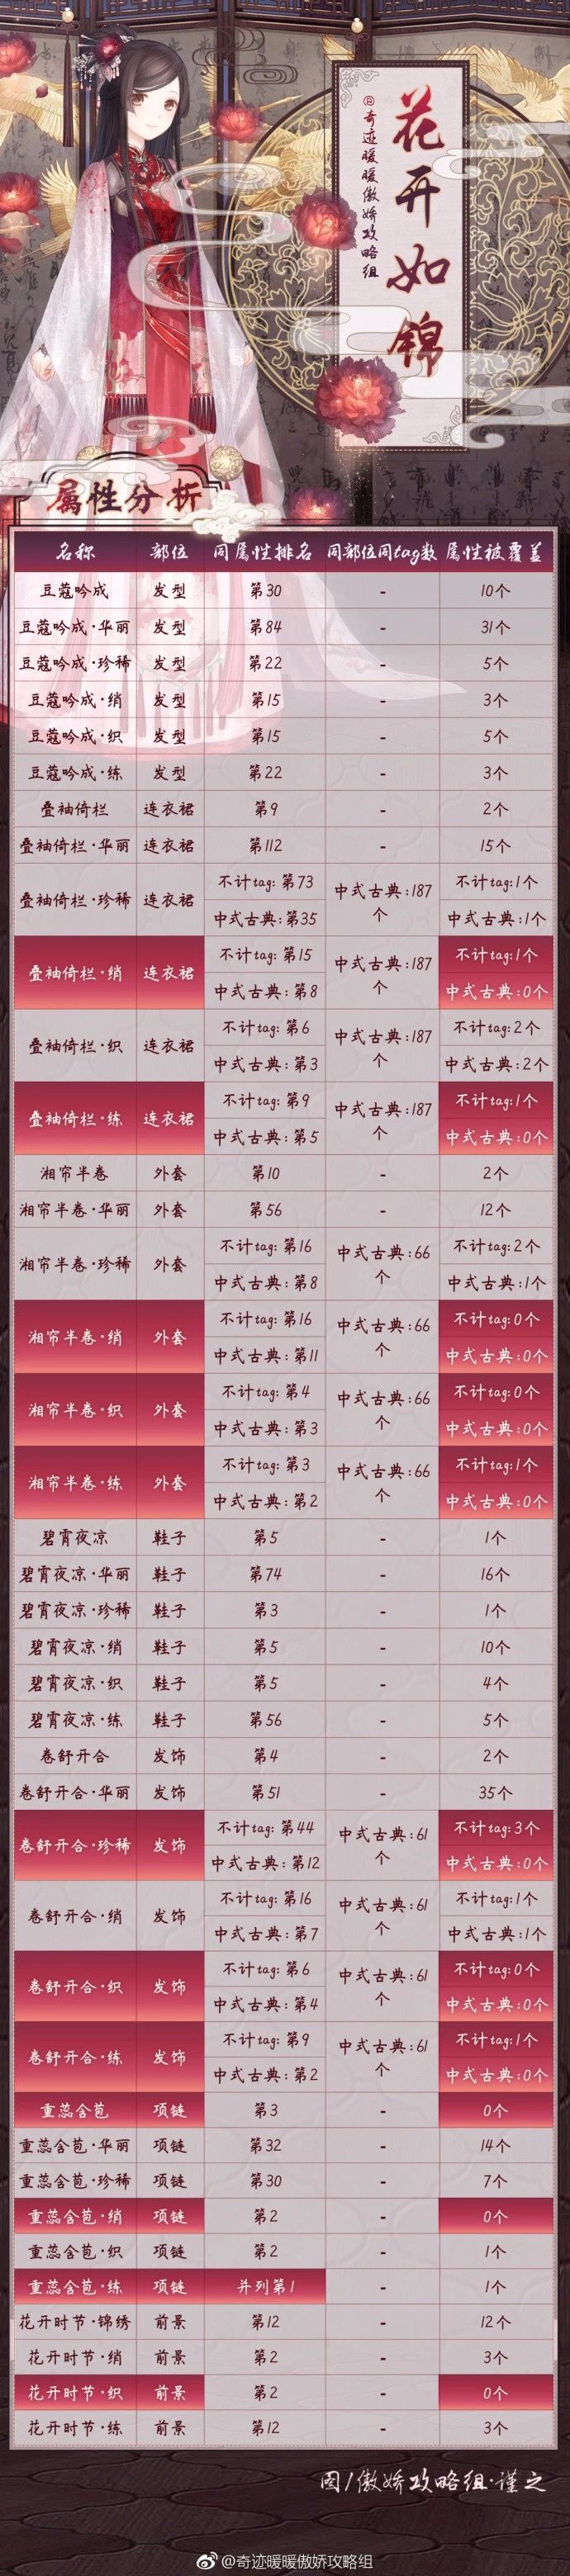 花开如锦
@奇迹暖暖傲娇攻略组
属性分析
名称 部位 同属性排名 同部位同tag数 属性被覆盖
豆蔻吟成 发型 第30 - 10个
豆蔻吟成·华丽 发型 第84 - 31个
豆蔻吟成·珍稀 发型 第22 - 5个
豆蔻吟成·绡 发型 第15 - 3个
豆蔻吟成·织 发型 第15 - 5个
豆蔻吟成·练 发型 第22 - 3个
叠袖倚栏 连衣裙 第9 - 2个
叠袖倚栏·华丽 连衣裙 第112 - 15个
叠袖倚栏·珍稀 连衣裙 不计tag: 第73 中式古典:187个 不计tag:1个
中式古典: 第35 中式古典:1个
叠袖倚栏·绡 连衣裙 不计tag: 第15 中式古典:187个 不计tag:1个
中式古典: 第8 中式古典:0个
叠袖倚栏·织 连衣裙 不计tag: 第6 中式古典:187个 不计tag:2个
中式古典: 第3 中式古典:2个
叠袖倚栏·练 连衣裙 不计tag: 第9 中式古典:187个 不计tag:1个
中式古典: 第5 中式古典:0个
湘帘半卷 外套 第10 - 2个
湘帘半卷·华丽 外套 第56 - 12个
湘帘半卷·珍稀 外套 不计tag: 第16 中式古典:66个 不计tag:2个
中式古典: 第8 中式古典:1个
湘帘半卷·绡 外套 不计tag: 第16 中式古典:66个 不计tag:0个
中式古典: 第11 中式古典:0个
湘帘半卷·织 外套 不计tag: 第4 中式古典:66个 不计tag:0个
中式古典: 第3 中式古典:0个
湘帘半卷·练 外套 不计tag: 第3 中式古典:66个 不计tag:1个
中式古典: 第2 中式古典:0个
碧霄夜凉 鞋子 第5 - 1个
碧霄夜凉·华丽 鞋子 第74 - 16个
碧霄夜凉·珍稀 鞋子 第3 - 1个
碧霄夜凉·绡 鞋子 第5 - 10个
碧霄夜凉·织 鞋子 第5 - 4个
碧霄夜凉·练 鞋子 第56 - 5个
卷舒开合 发饰 第4 - 2个
卷舒开合·华丽 发饰 第51 - 35个
卷舒开合·珍稀 发饰 不计tag: 第44 中式古典:61个 不计tag:3个
中式古典: 第12 中式古典:0个
卷舒开合·绡 发饰 不计tag: 第16 中式古典:61个 不计tag:1个
中式古典: 第7 中式古典:1个
卷舒开合·织 发饰 不计tag: 第6 中式古典:61个 不计tag:0个
中式古典: 第4 中式古典:0个
卷舒开合·练 发饰 不计tag: 第9 中式古典:61个 不计tag:1个
中式古典: 第2 中式古典:0个
重蕊含苞 项链 第3 - 0个
重蕊含苞·华丽 项链 第32 - 14个
重蕊含苞·珍稀 项链 第30 - 7个
重蕊含苞·绡 项链 第2 - 0个
重蕊含苞·织 项链 第2 - 1个
重蕊含苞·练 项链 并列第1 - 1个
花开时节·锦绣 前景 第12 - 12个
花开时节·绡 前景 第2 - 3个
花开时节·织 前景 第2 - 0个
花开时节·练 前景 第12 - 3个
图/傲娇攻略组·谨之
@奇迹暖暖傲娇攻略组